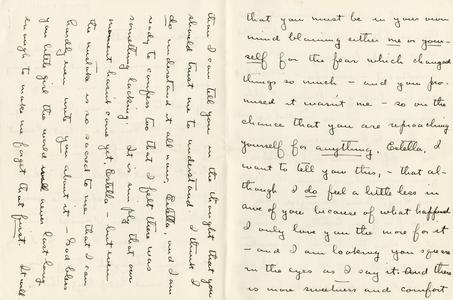 that you must be in your own
mind blaming either me or your-
self for the fear which changed
things so much – and you pro-
mised it wasn't me – so on the
chance that you are reproaching
yourself for anything, Estella, I
want to tell you this, – that al-
though I do feel a little less in
awe of you because of what happened
I only love you the more for it
– and I am looking you square
in the eyes as I say it. And there
is more sweetness and comfort
time I can tell you in the thought that you
should trust me to understand. I think I
do understand it all now, Estella, and I am
ready to confess too that I felt there was
something lacking. It is simply that our
moment hasn't come yet, Estella – but even
the mistake is so sacred to me that I can
hardly even write you about it – God bless
you little girl the world will never last long
enough to make me forget that first. It will